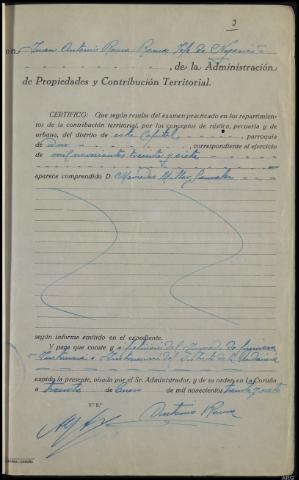 3
on Juan Antonio Rama Rama Jefe de Negociado
, de la Administración
de Propiedades y Contribución Territorial.
CERTIFICO: Que según resulta del examen practicado en los repartimientos
de la contribución territorial, por los conceptos de rústica, pecuaria y de
urbana, del distrito de esta Capital, parroquia
de , correspondiente al ejercicio
de mil novecientos treinta y siete
aparece comprendido D.
según informe emitido en el expediente.
Y para que conste y a petición del Juzgado de primera
Instancia e Instrucción del
expido la presente, visada por el Sr. Administrador, y de su orden en La Coruña
a treinta de Enero de mil novecientos treinta y siete
V.º B.º
Antonio Rama